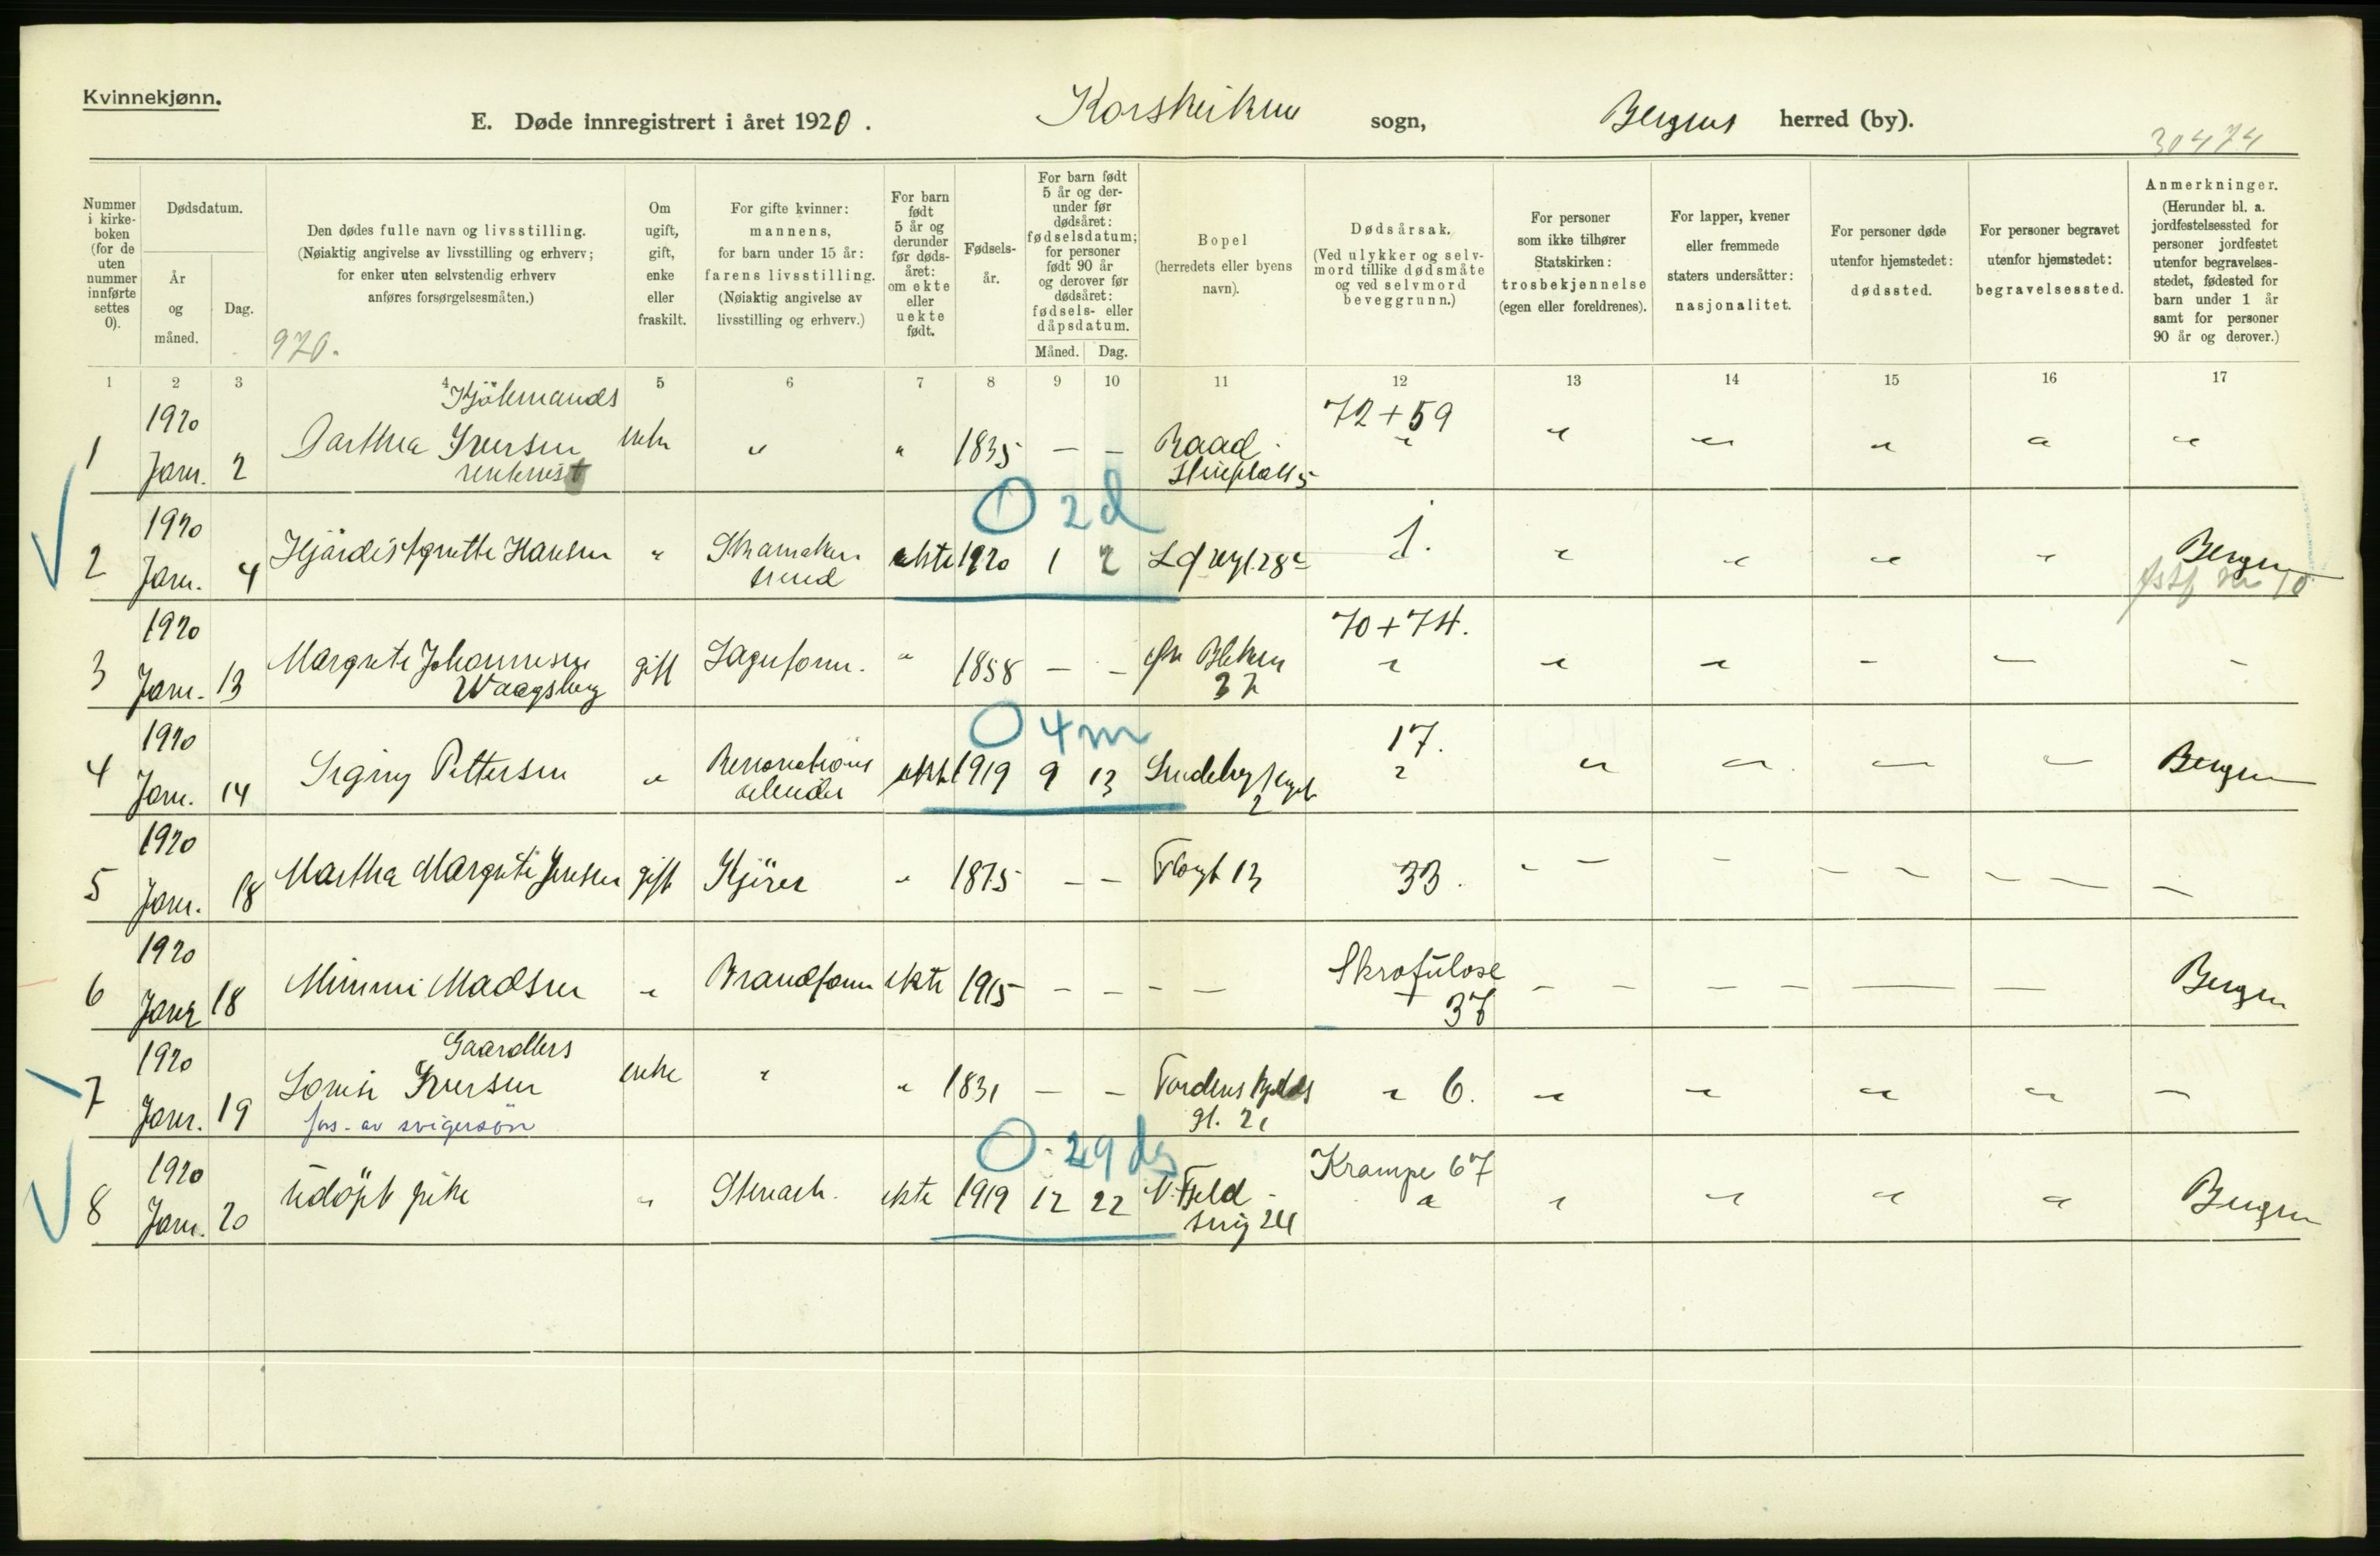 Kvinnekjønn.
E. Døde innregistrert i året 1920. Korskirken sogn, Bergens herred (by).
30474
Nummer i kirke-boken (for de uten nummer innførte settes 0).
Dødsdatum.
År og måned.
Dag.
Den dødes fulle navn og livsstilling.
(Nøiaktig angivelse av livsstilling og erhverv;
for enker uten selvstendig erhverv
anføres forsørgelsesmåten.)
920.
Om ugift, gift, enke eller fraskilt.
For gifte kvinner:
mannens,
for barn under 15 år:
farens livsstilling.
(Nøiaktig angivelse av
livsstilling og erhverv.)
For barn født 5 år og derunder før døds-året: om ekte eller uekte født.
Fødsels-år.
For barn født 5 år og der-under før dødsåret: fødselsdatum; for personer født 90 år og derover før dødsåret: fødsels- eller dåpsdatum.
Måned. Dag.
Bopel
(herredets eller byens navn).
Dødsårsak.
(Ved ulykker og selv-mord tillike dødsmåte og ved selvmord beveggrunn.)
For personer som ikke tilhører Statskirken: trosbekjennelse (egen eller foreldrenes).
For lapper, kvener eller fremmede staters undersåtter: nasjonalitet.
For personer døde utenfor hjemstedet: dødssted.
For personer begravet utenfor hjemstedet: begravelsessted.
Anmerkninger.
(Herunder bl. a. jordfestelsessted for personer jordfestet utenfor begravelses-stedet, fødested for barn under 1 år samt for personer 90 år og derover.)
1 2 3 4 5 6 7 8 9 10 11 12 13 14 15 16 17
Kjøbmands
1 1920 Janr. 2 Darthea Iversen enke " " 1835 — — Raad- 72+59 " " " " " "
rentenist stueplads 5
O 2d
2 1920 Janr. 4 Hjørdis Agnethe Hansen " Skomaker ekte 1920 1 2 1. " " " " Bergen
svend
10
3 1920 Janr. 13 Margrete Johannesen gift Lagerform. " 1858 — — 70+74. " " " — — —
Waagsberg
O 4m
4 1920 Janr. 14 Signy Pettersen " Renovations ekte 1919 9 13 17. " " " — — Bergen
arbeider 2
5 1920 Janr. 18 Martha Margrete Jensen gift Kjører " 1875 — — 13 33. — — — — —
6 1920 Janr 18 Mimmi Madsen " Brandform ekte 1915 — — — — Skrofulose — — — — — — Bergen
+ 37
Gaardbrs
7 1920 Janr. 19 Lovise Iversen enke " " 1831 — — Tordenskjolds " 6. " " " " —
fors. av svigersøn gt. 21
O 29 dg
8 1920 Janr. 20 Udøpt pike " Stenarb. ekte 1919 12 22 N. Fjeld- Krampe 67 " " " " " Bergen
smug 24